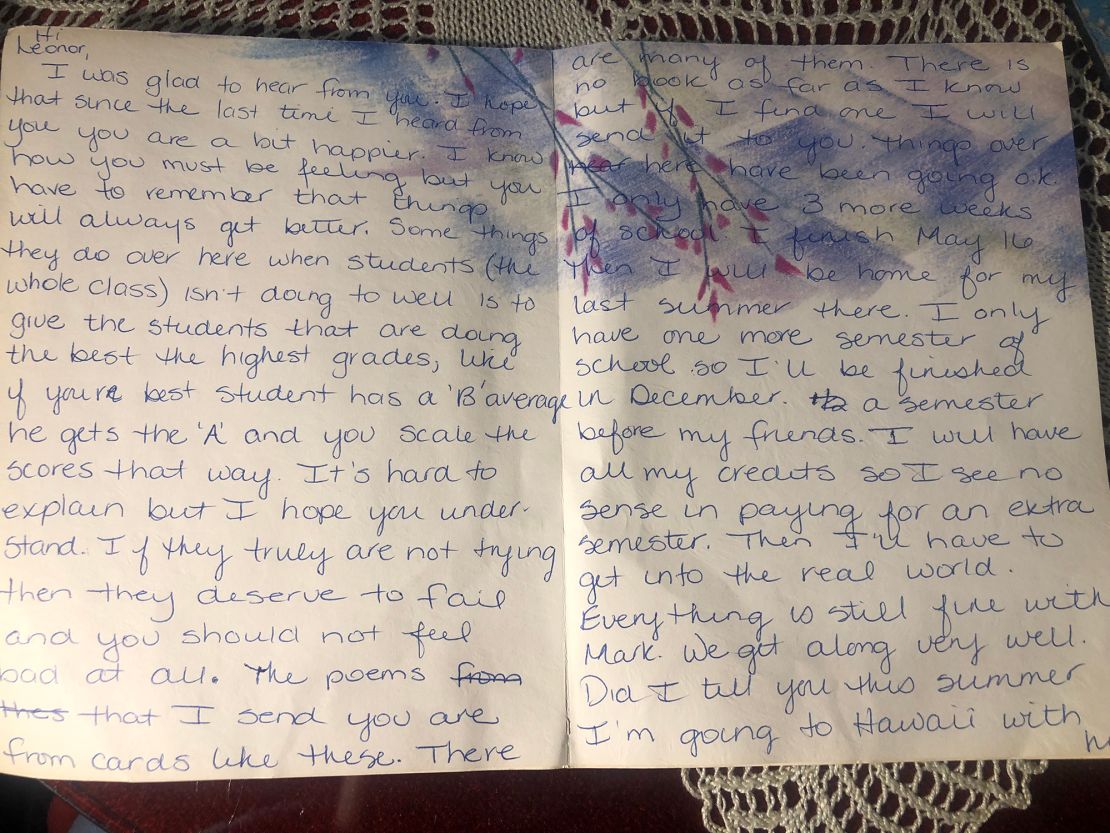 Hi
Leonor,
I was glad to hear from you. I hope
that since the last time I heard from
you you are a bit happier. I know
how you must be feeling but you
have to remember that things
will always get better. Some things
they do over here when students (the
whole class) isn't doing to well is to
give the students that are doing
the best the highest grades, like
if youre best student has a 'B' average
he gets the 'A' and you scale the
scores that way. It's hard to
explain but I hope you under-
stand. If they truly are not trying
then they deserve to fail
and you should not feel
bad at all. The poems from
thes that I send you are
from cards like these. There
are many of them. There is
no book as far as I know
but if I find one I will
send it to you. Things over
hear here have been going o.k.
I only have 3 more weeks
of school. I finish May 16
then I will be home for my
last summer there. I only
have one more semester of
school so I'll be finished
in December. a semester
before my friends. I will have
all my credits so I see no
sense in paying for an extra
semester. Then I'll have to
get into the real world.
Everything is still fine with
Mark. We get along very well.
Did I tell you this summer
I'm going to Hawaii with